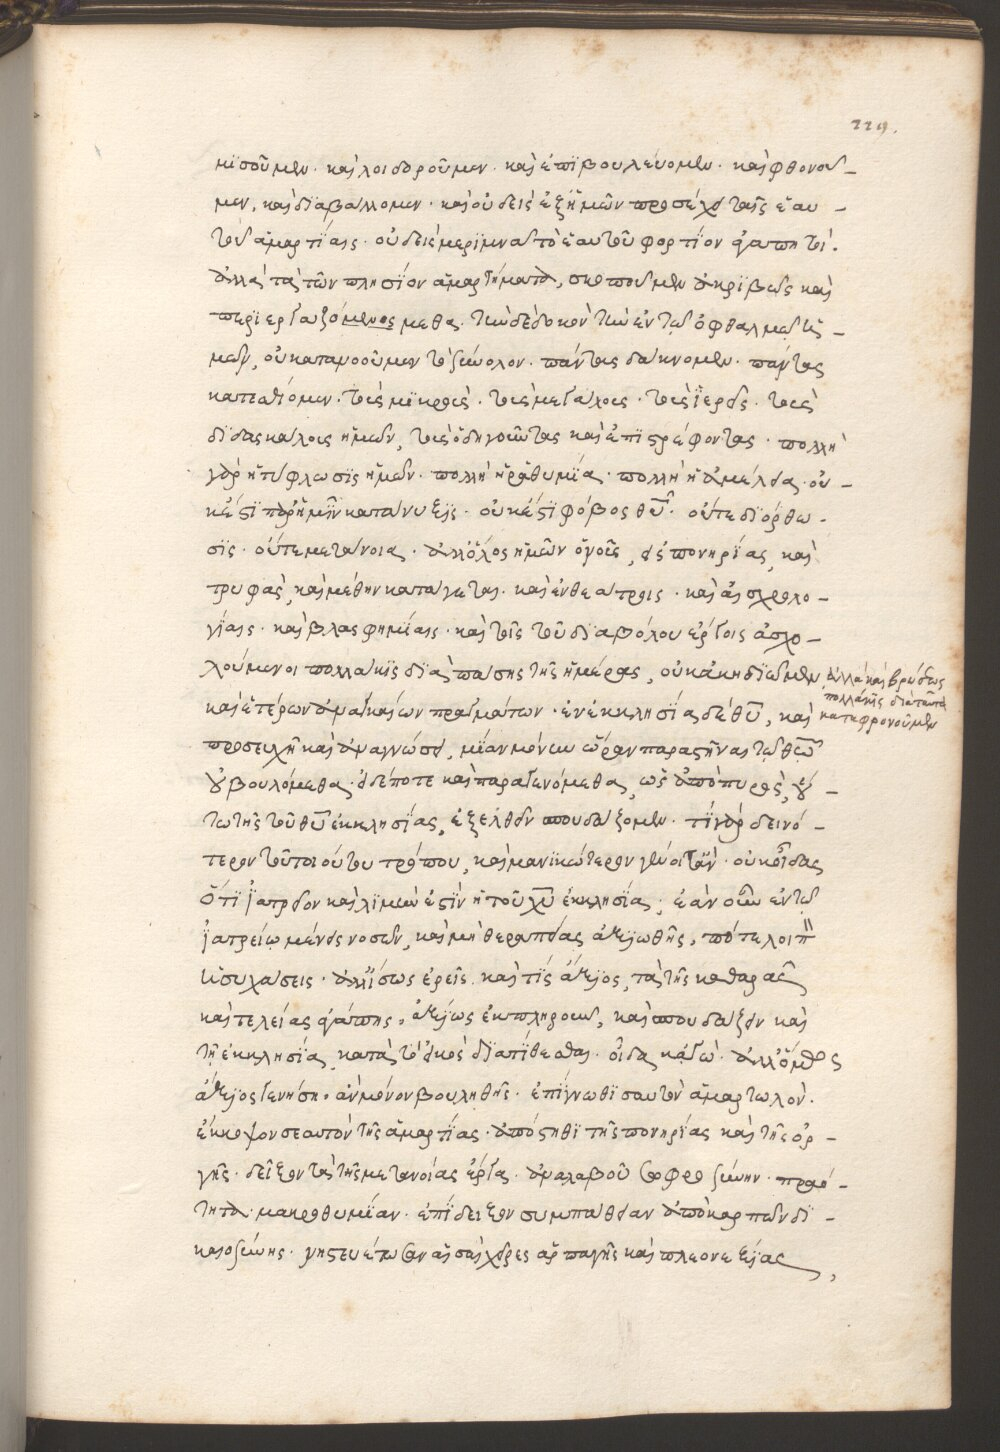 229.
μισοῦμεν· καὶ λοιδοροῦμεν· καὶ ἐπιβουλεύομεν· καὶ φθονοῦ-
μεν, καὶ διαβάλλομεν· καὶ οὐδεὶς ἐξ ἡμῶν προσέχει ταῖς ἑαυ-
τοῦ ἁμαρτίαις· οὐδεὶς μεριμνᾷ τὸ ἑαυτοῦ φορτίον ἀγαπητοί.
ἀλλὰ τὰ τῶν πλησίον ἁμαρτήματα, σκοποῦμεν ἀκριβῶς καὶ
περιεργαζόμενος μεθα· τὴν δὲ δοκὸν τὴν ἐν τῷ ὀφθαλμῷ ἡ-
μῶν, οὐ κατανοοῦμεν τὸ σύνολον· πάντας δάκνομεν· πάντας
κατεσθίομεν· τοὺς μικροὺς· τοὺς μεγάλους· τοὺς ἱερεῖς· τοὺς
διδασκάλους ἡμῶν, τοὺς ὁδηγοῦντας καὶ ἐπιστρέφοντας· πολλὴ
γὰρ ἡ τύφλωσις ἡμῶν· πολλὴ ἡ ῥαθυμία· πολλὴ ἡ ἀμέλεια· οὐ-
κ ἔστι παρ' ἡμῖν κατάνυξις· οὐκ ἔστι φόβος θυ· οὔτε διόρθω-
σις· οὔτε μετάνοια· ἀλλ' ὅλος ἡμῶν ὁ νοῦς, εἰς πονηρίας, καὶ
τρυφὰς, καὶ μέθην καταγίνεται· καὶ ἐν θεάτροις· καὶ αἰσχρολο-
γίαις· καὶ βλασφημίαις· καὶ τοῖς τοῦ διαβόλου ἔργοις ἀσχο-
λούμενοι πολλάκις διὰ πάσης τῆς ἡμέρας, οὐκ ἀκηδιῶμεν, ἀλλὰ καὶ βρώσεως
πολλάκις διὰ ταῦτα
καταφρονοῦμεν
καὶ ἑτέρων ἀναγκαίων πραγμάτων· ἐν ἐκκλησίᾳ δὲ θυ, καὶ
προσευχῇ καὶ ἀναγνώσει, μίαν μόνην ὥραν παραστῆναι τῷ θῷ
οὐ βουλόμεθα· εἰ δέ ποτε καὶ παραγενόμεθα, ὡς ἀπὸ πυρὸς, οὕ-
τω τῆς τοῦ θυ ἐκκλησίας, ἐξελθεῖν σπουδάζομεν· τί γὰρ δεινό-
τερον τοῦ τοιούτου τρόπου, καὶ μανικώτερον γένοιτ' ἄν· οὐκ οἶδας
ὅτι ἰατρεῖον καὶ λιμὴν ἐστὶν ἡ τοῦ χυ ἐκκλησία; ἐὰν οὖν ἐν τῷ
ἰατρείῳ μένεις νοσῶν, καὶ μὴ θεραπείας ἀξιωθῇς, πότε λοιπ
ἡσυχάσεις· ἀλλ' ἴσως ἐρεῖς· καὶ τίς ἄξιος, τὰ τῆς καθαρᾶς
καὶ τελείας ἀγάπης, ἀξίως ἐκπληροῦν, καὶ σπουδάζειν καὶ
τῇ ἐκκλησίᾳ κατὰ τὸ εἰκὸς διατίθεσθαι· οἶδα κἀγώ· ἀλλ' ὅμως
ἄξιος γενήσῃ, ἂν μόνον βουληθῇς· ἐπίγνωθι σαυτὸν ἁμαρτωλόν.
ἔκκοψον σεαυτὸν τῆς ἁμαρτίας· ἀπόστηθι τῆς πονηρίας καὶ τῆς ὀρ-
γῆς· δεῖξον τὰ τῆς μετανοίας ἔργα· ἀναλαβοῦ σωφροσύνην· πραό-
τητα· μακροθυμίαν· ἐπίδειξον συμπάθειαν ἀπὸ καρπῶν δι-
καιοσύνης· νηστευέτωσαν αἱ σαὶ χεῖρες ἁρπαγῆς καὶ πλεονεξίας,